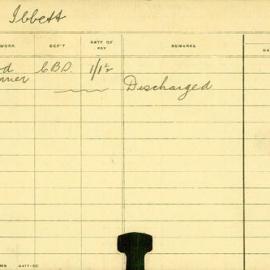 Ibbett
WORK DEP'T RATE OF PAY REMARKS
C.B.D. 1/1½
Discharged